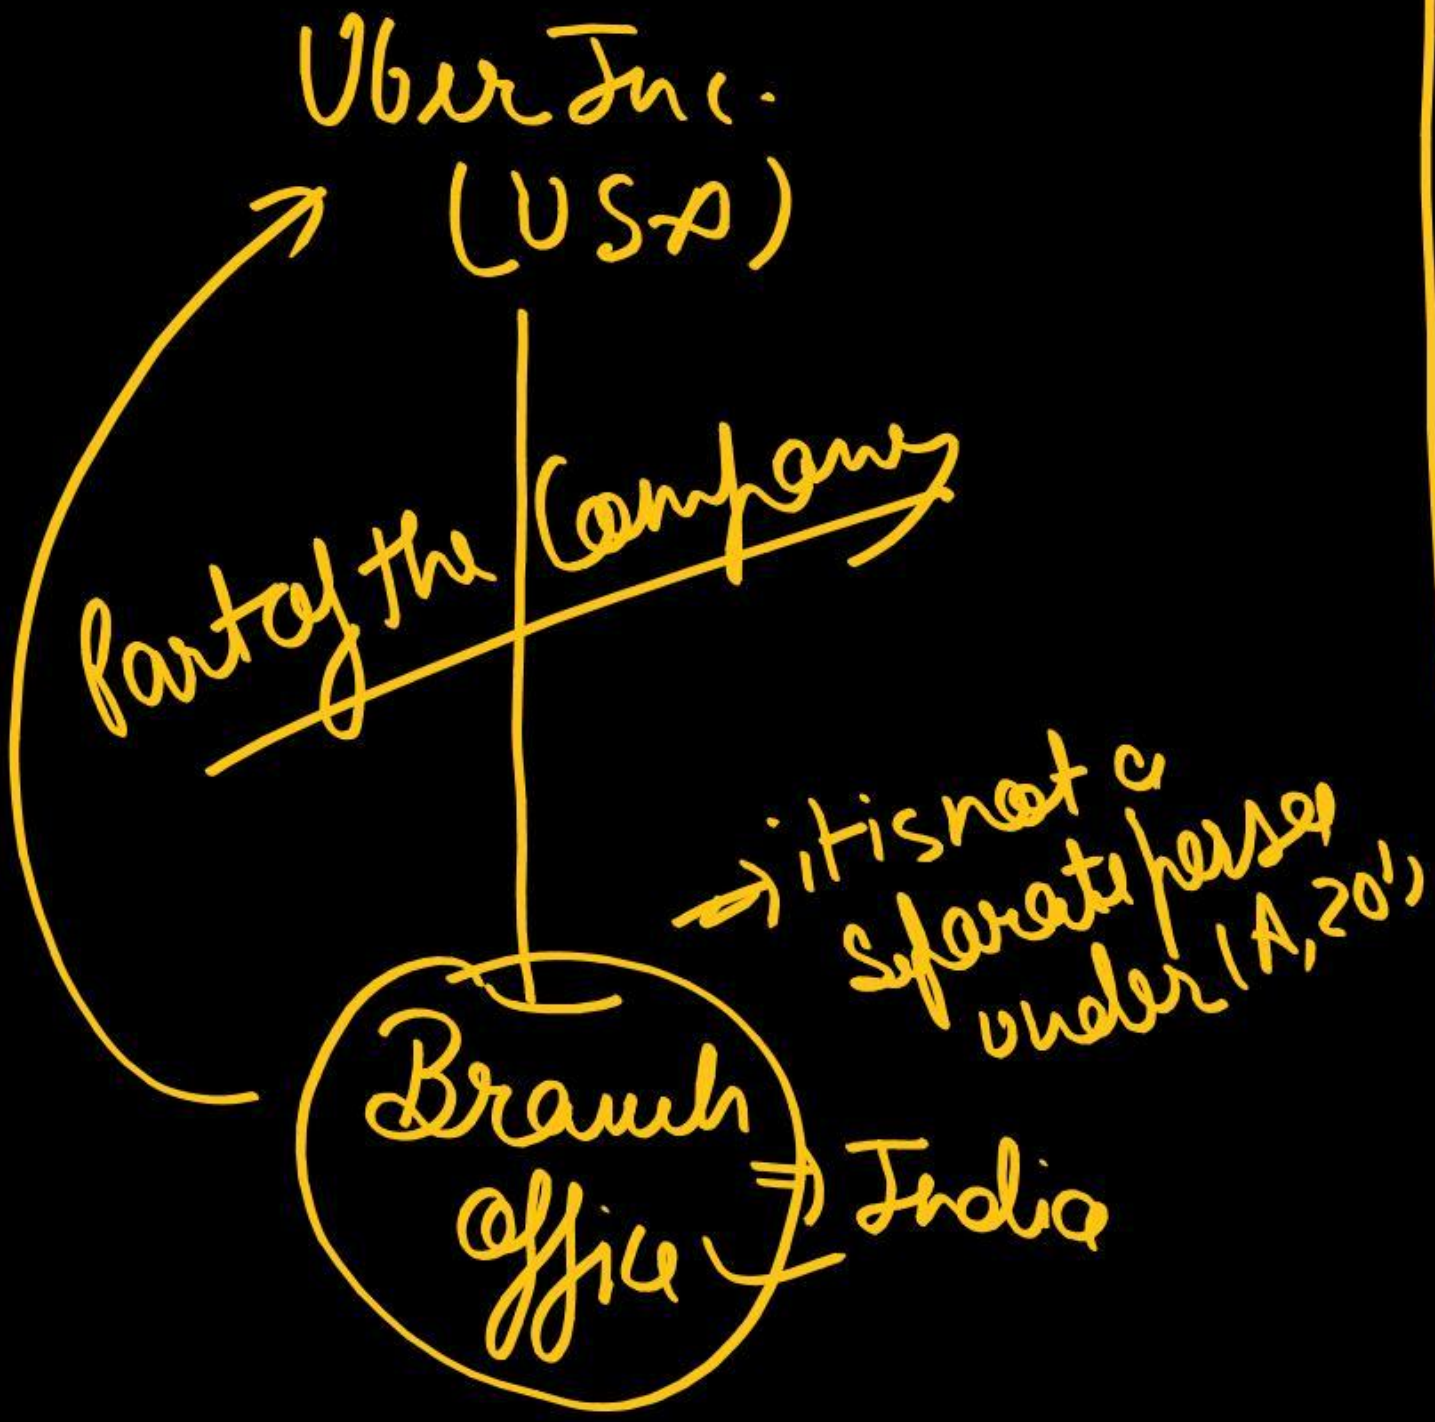 Uber Inc.
(USA)
Part of the Company
→ it is not a
separate person
under IA, 20'
Branch
office ⇒ India